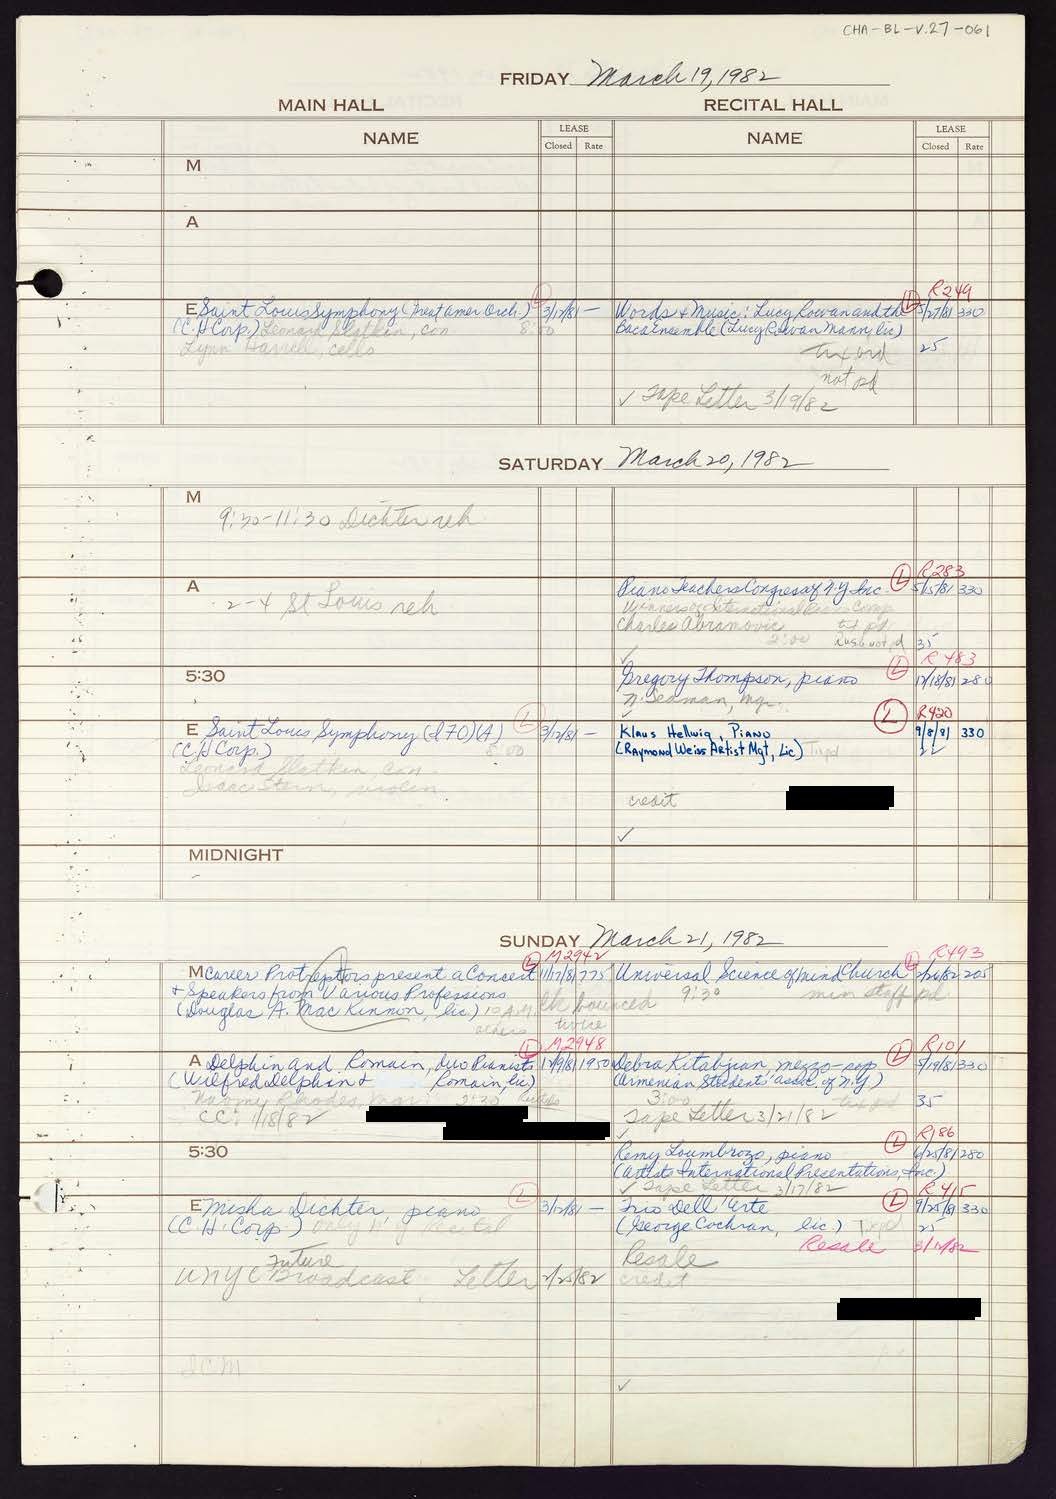 CHA-BL-V.27-061
FRIDAY March 19, 1982
MAIN HALL RECITAL HALL
NAME LEASE Closed Rate NAME LEASE Closed Rate
M
A
R249
E Saint Louis Symphony (Great Amer Orch.) L 3/12/81 — Words & Music: Lucy Rowan and the L 5/27/81 330
(C.H Corp.) Leonard Slatkin, con 8:00 Baca Ensemble (Lucy Rowan Mann, lic)
Lynn Harrell, cello 25
txt ord
not pd
✓ Tape Letter 3/19/82
SATURDAY March 20, 1982
M
9:30-11:30 Dichter reh
R283
A 2-4 St Louis reh Piano Teachers Congress of N.Y. Inc. L 5/15/81 330
Winners of International Piano Comp
Charles Abramovic txt pd
2:00 pd 35
✓ R483
5:30 Gregory Thompson, piano L 280
N. Seaman, mgr.
✓ R420
E Saint Louis Symphony (270)(A) L 3/12/81 — Klaus Hellwig, Piano L 9/8/81 330
(C.H Corp.) 8:00 (Raymond Weiss Artist Mgt, Lic) Txt pd
Leonard Slatkin, con.
Isaac Stern, violin
credit
✓
MIDNIGHT
SUNDAY March 21, 1982
L M2942 R493
M Career present a Concert 11/17/81 775 Universal Science of Mind Church L 205
+ Speakers from Various Professions 9:30 min staff pd
(Douglas A. Mac Kinnon, lic.) 10 A.M. ck bounced
others twice
L M2948 R101
A Delphin and Romain, duo Pianists 1950 Debra Kitabjian, mezzo-sop L 330
(Wilfred Delphin & Romain, lic.) (Armenian Students' Assoc. of N.Y.)
Naomi Rhodes, Mgr. 2:30 3:00 txt pd 35
CC: 1/18/82 Tape Letter 3/21/82
✓ R186
5:30 Remy Loumbrozo, piano L 6/25/81 280
(Artists International Presentations, Inc.)
✓ Tape Letter 3/17/82 R415
E Misha Dichter, piano L 3/12/81 — Trio Dell'Arte L 330
(C.H. Corp.) only N.Y. recital (George Cochran, lic.) Txt pd 25
Resale 3/12/82
Future Resale
WNYC Broadcast Letter 2/25/82 credit
ICM
✓